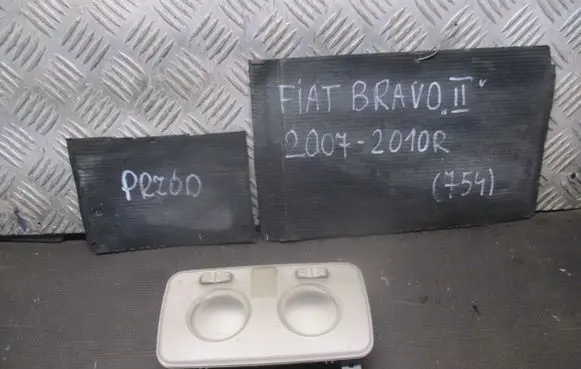 PRZÓD
FiAT BRAVO „II"
2007-2010R
(754)